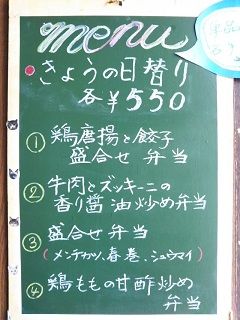 menu
きょうの日替り
各￥550
① 鶏唐揚と餃子
盛合せ 弁当
② 牛肉とズッキーニの
香り醤油炒め弁当
③ 盛合せ 弁当
(メンチカツ、春巻、シュウマイ)
④ 鶏ももの甘酢炒め
弁当
単品